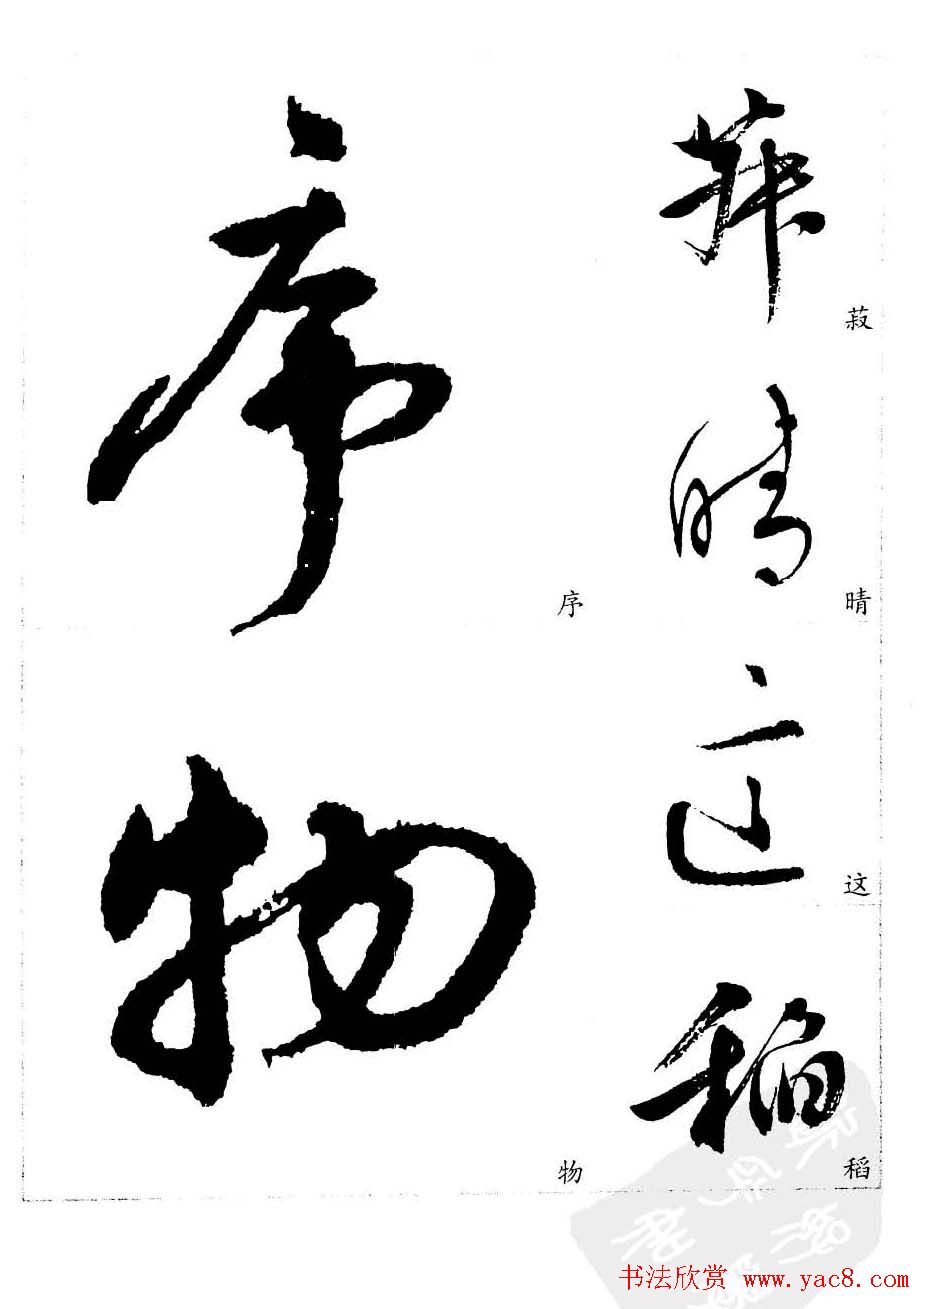 菽
菽
晴
晴
这
这
稻
稻
序
序
物
物
书法欣赏 www.yac8.com